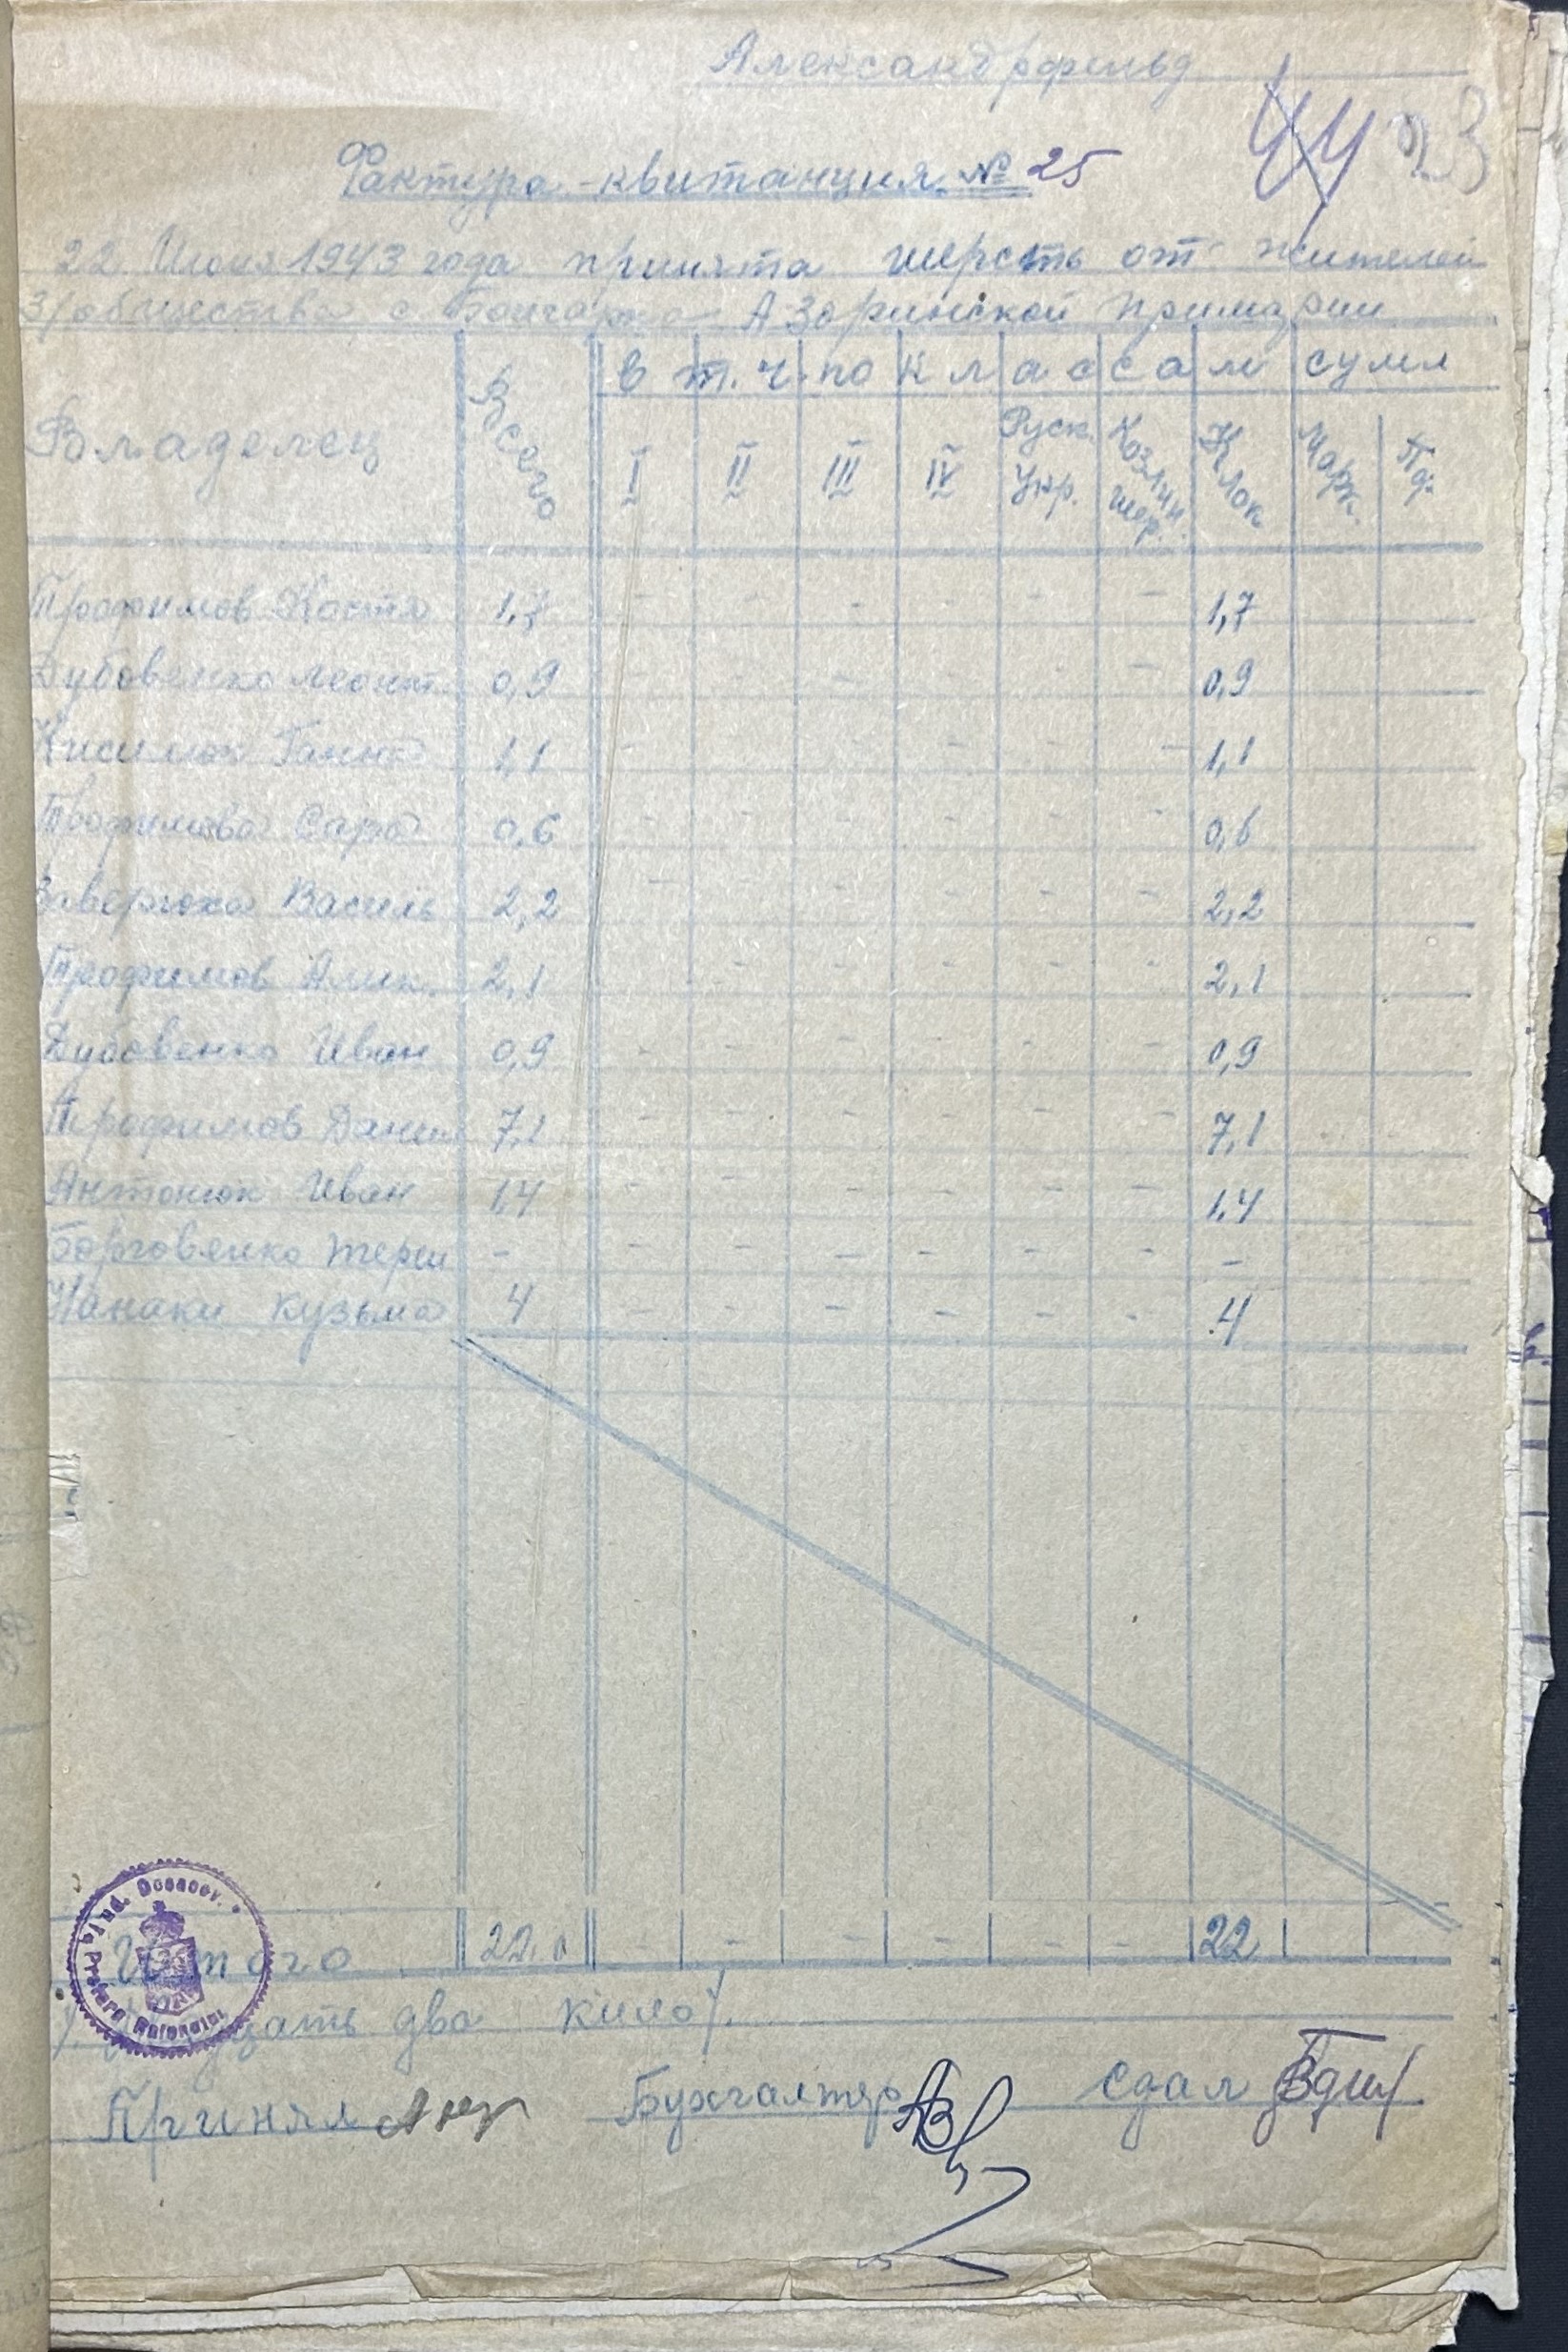 Александрфельд
44 23
Фактура-квитанция № 25
22 Июня 1943 года принята шерсть от жителей
з/общества с. Бончарс Азаринской примарии
Владелец Всего в т.ч. по классам сумм
I II III IV Руск. Укр. Козлин. шер. Клок Марк. Пф.
Трофимов Костя 1,7 - - - - - - 1,7
Дубовенко Леонт. 0,9 - - - - - - 0,9
Ганна 1,1 - - - - - - 1,1
Трофимова Сара 0,6 - - - - - - 0,6
Заверюха Василь 2,2 - - - - - - 2,2
Трофимов Алек. 2,1 - - - - - - 2,1
Дубовенко Иван 0,9 - - - - - - 0,9
Трофимов Данил 7,1 - - - - - - 7,1
Антонюк Иван 1,4 - - - - - - 1,4
Борговенко - - - - - - - -
Кузьма 4 - - - - - - 4
Итого 22.0 - - - - - - 22
/ Двадцать два кило /.
Принял Бухгалтер Сдал
Jud. Pretura Raionului